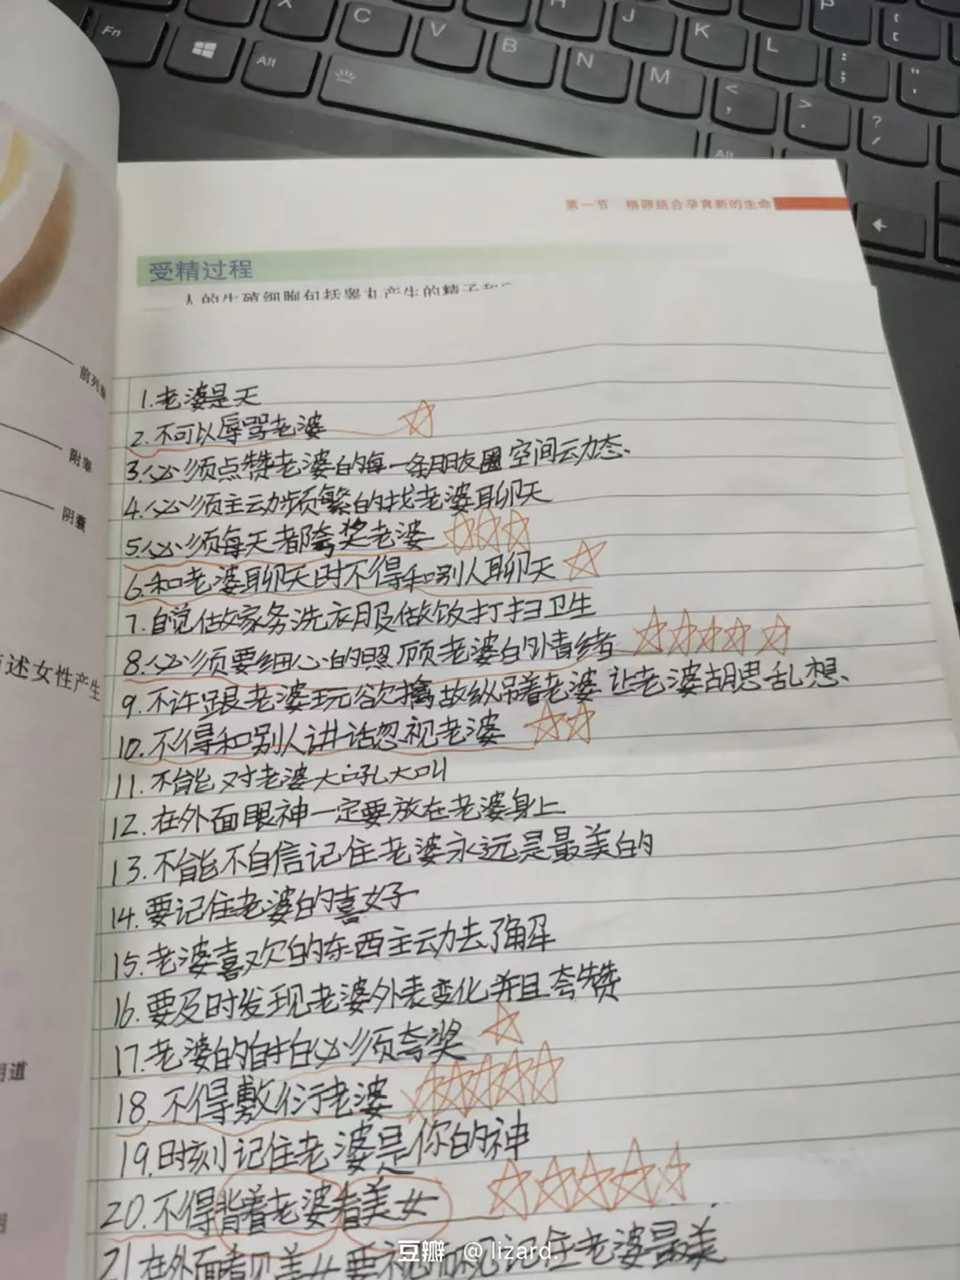 Fn
Alt
X
C
V
B
N
M
H
J
K
L
P
Alt
第一节 精卵结合孕育新的生命
受精过程
人的生殖细胞包括睾丸产生的精子和
前列腺
附睾
阴囊
述女性产生
阴道
1.老婆是天
2.不可以辱骂老婆
3.必须点赞老婆的每一条朋友圈空间动态、
4.必须主动频繁的找老婆聊天
5.必须每天都夸奖老婆
6.和老婆聊天时不得和别人聊天
7.自觉做家务洗衣服做饭打扫卫生
8.必须要细心的照顾老婆的情绪
9.不许跟老婆玩欲擒故纵吊着老婆 让老婆胡思乱想、
10.不得和别人讲话忽视老婆
11.不能对老婆大吼大叫
12.在外面眼神一定要放在老婆身上
13.不能不自信记住老婆永远是最美的
14.要记住老婆的喜好
15.老婆喜欢的东西主动去了解
16.要及时发现老婆外表变化并且夸赞
17.老婆的自拍必须夸奖
18.不得敷衍老婆
19.时刻记住老婆是你的神
20.不得背着老婆看美女
21在外面看见美女要视而不见记住老婆最美
豆瓣 @lizard.